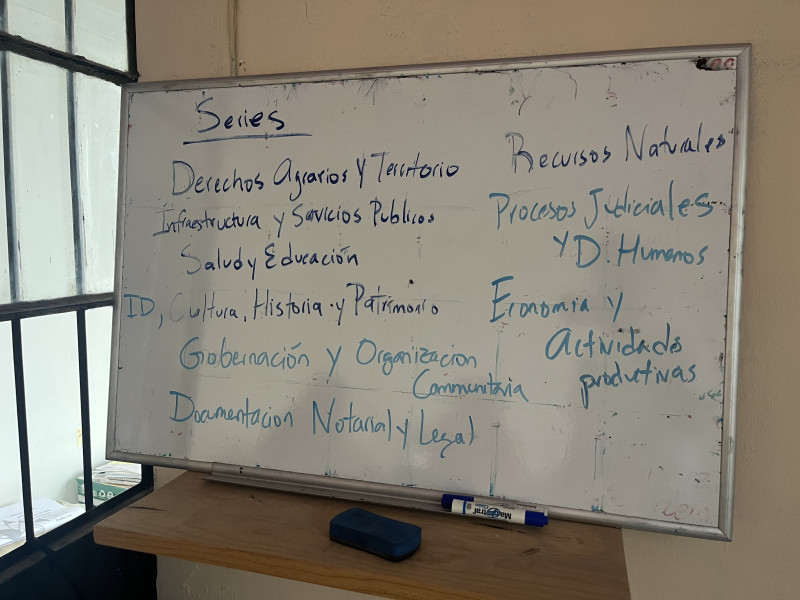 Series
Derechos Agrarios y Territorio
Infraestructura y Servicios Publicos
Salud y Educación
ID, Cultura, Historia y Patrimonio
Gobernación y Organizacion
Communitaria
Documentacion Notarial y Legal
Recursos Naturales
Procesos Judiciales
y D. Humanos
Economia y
Actividades
productivas
Magistral